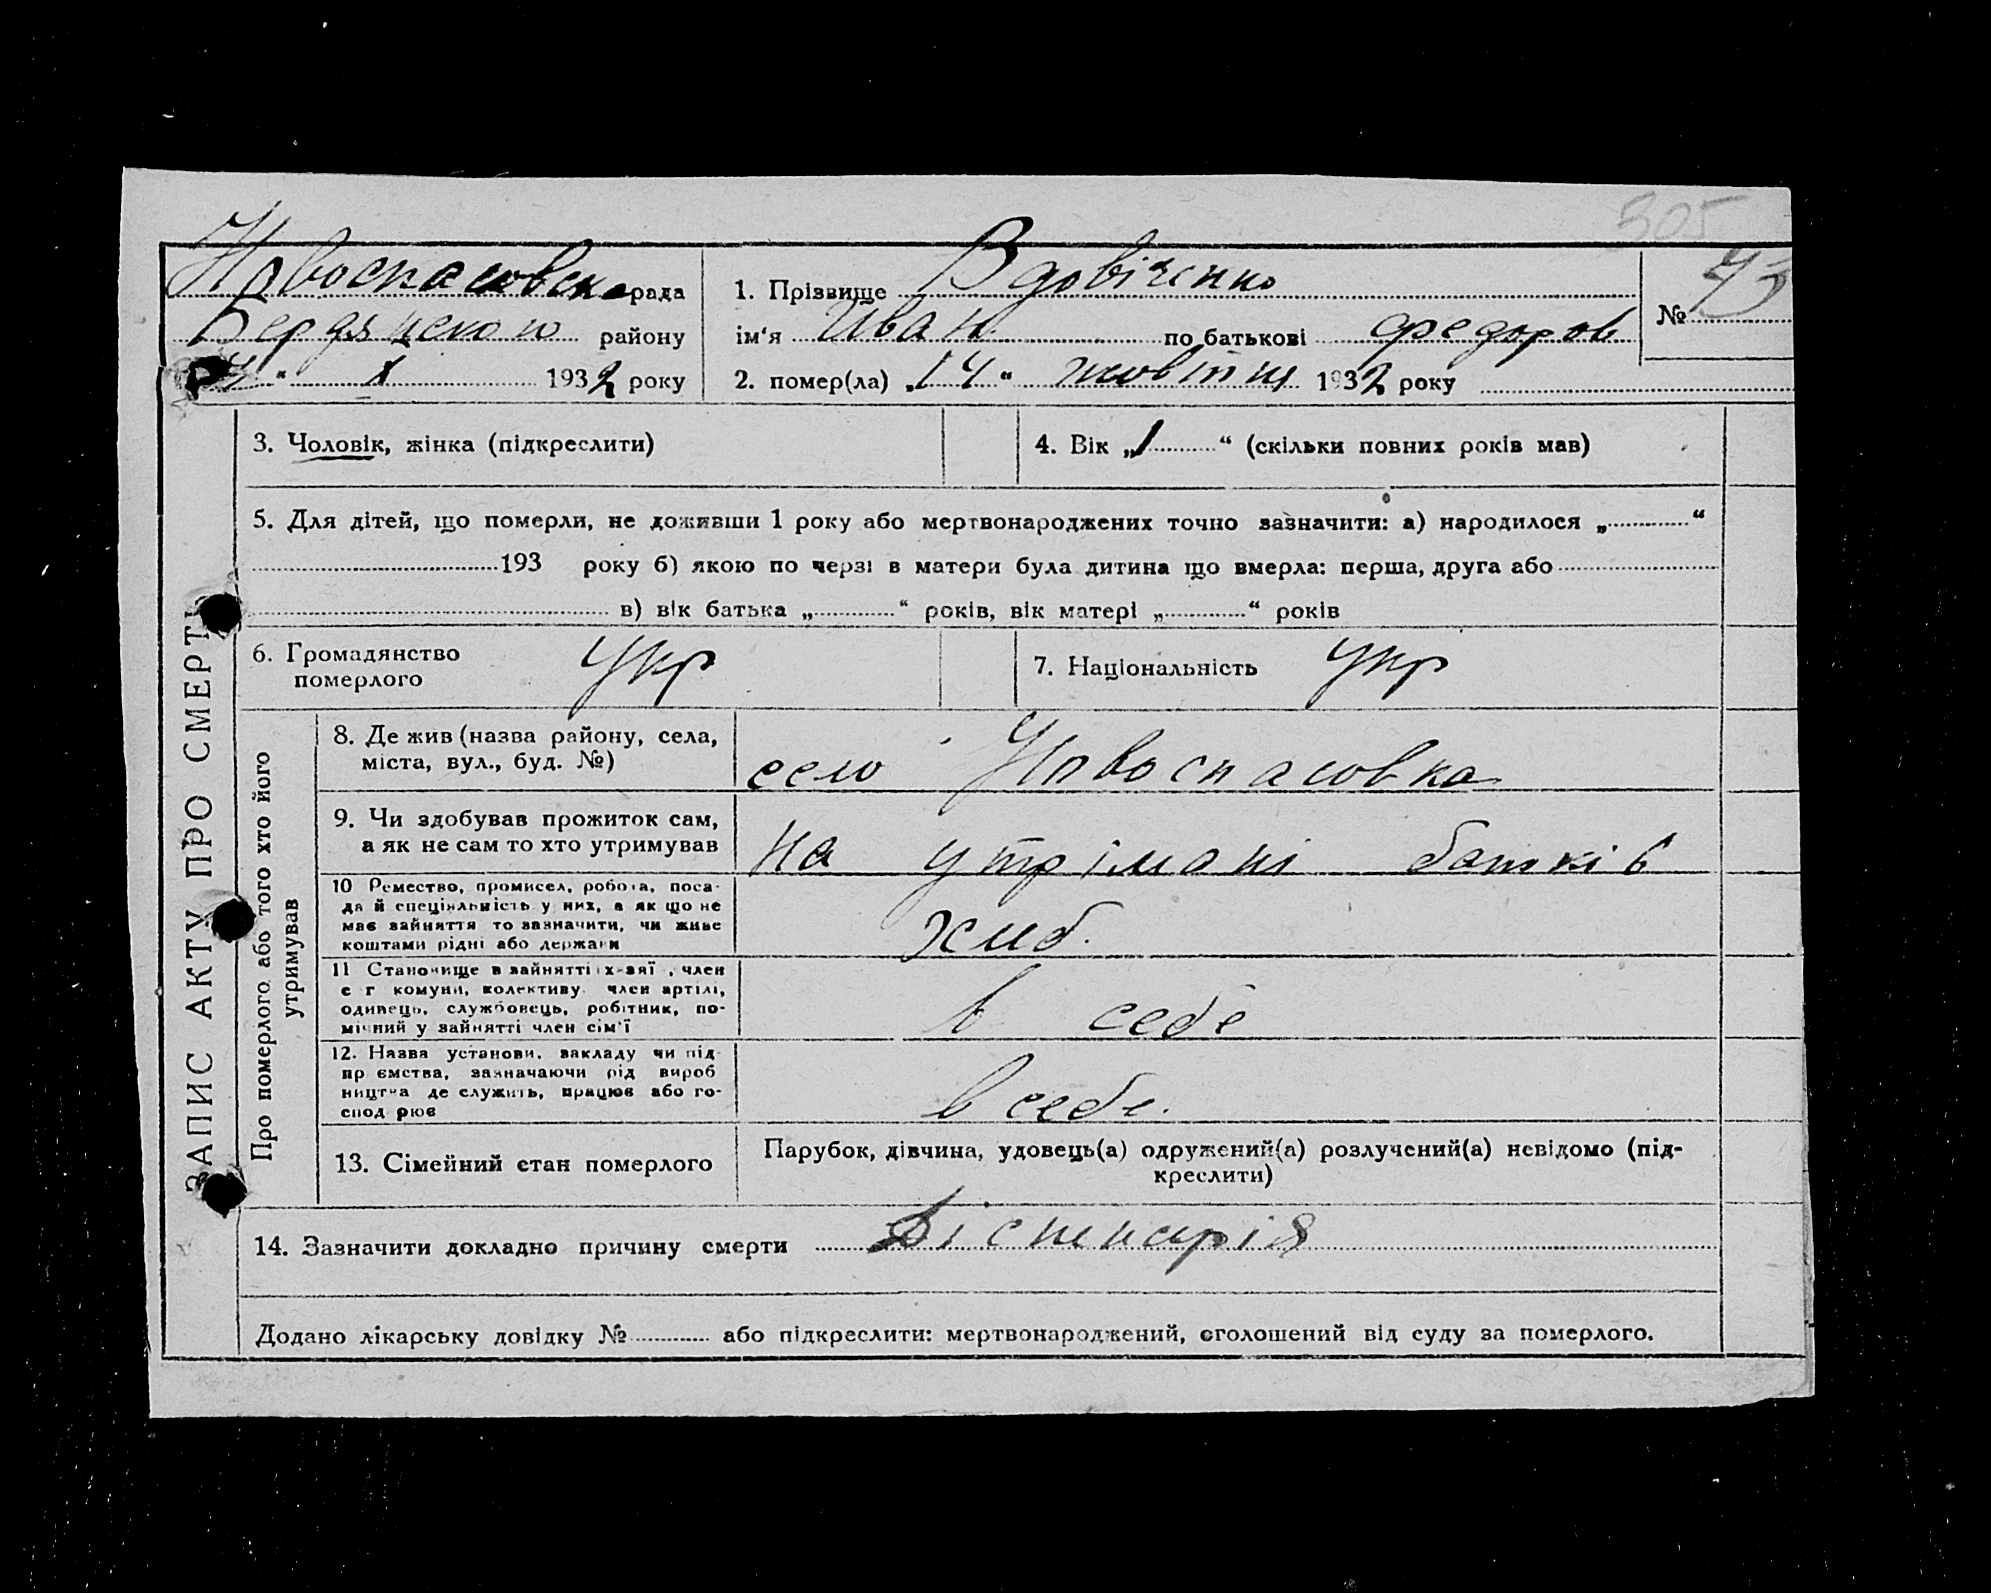 305
Новоспасовска рада
Бердянського району
X 1932 року
1. Прізвище Вдовіченко
ім‘я Иван по батькові Федоров
№ 73
2. помер(ла) „14“ жовтня 1932 року
ЗАПИС АКТУ ПРО СМЕРТЬ
3. Чоловік, жінка (підкреслити)
4. Вік „1“ (скільки повних років мав)
5. Для дітей, що померли, не доживши 1 року або мертвонароджених точно зазначити: а) народилося „ “
193 року б) якою по черзі в матери була дитина що вмерла: перша, друга або
в) вік батька „ “ років, вік матері „ “ років
6. Громадянство померлого Укр
7. Національність Укр
Про померлого або того хто його
утримував
8. Де жив (назва району, села,
міста, вул., буд. №)
село Новоспасовка
9. Чи здобував прожиток сам,
а як не сам то хто утримував
на утрімані батьків
10 Ремество, промисел, робота, поса-
да й спеціяльність у них, а як що не
має зайняття то зазначити, чи живе
коштами рідні або держави
хліб.
11 Становище в зайнятті член
с г комуни, колективу член артілі,
одинець, службовець, робітник, по-
мічний у зайнятті член сім‘ї
в себе
12. Назва установи, закладу чи під-
пр ємства, зазначаючи рід вироб
ництва де служить, працює або го-
спод рює
в себе.
13. Сімейний стан померлого
Парубок, дівчина, удовець(а) одружений(а) розлучений(а) невідомо (під-
креслити)
14. Зазначити докладно причину смерти Дістенерія
Додано лікарську довідку № або підкреслити: мертвонароджений, оголошений від суду за померлого.